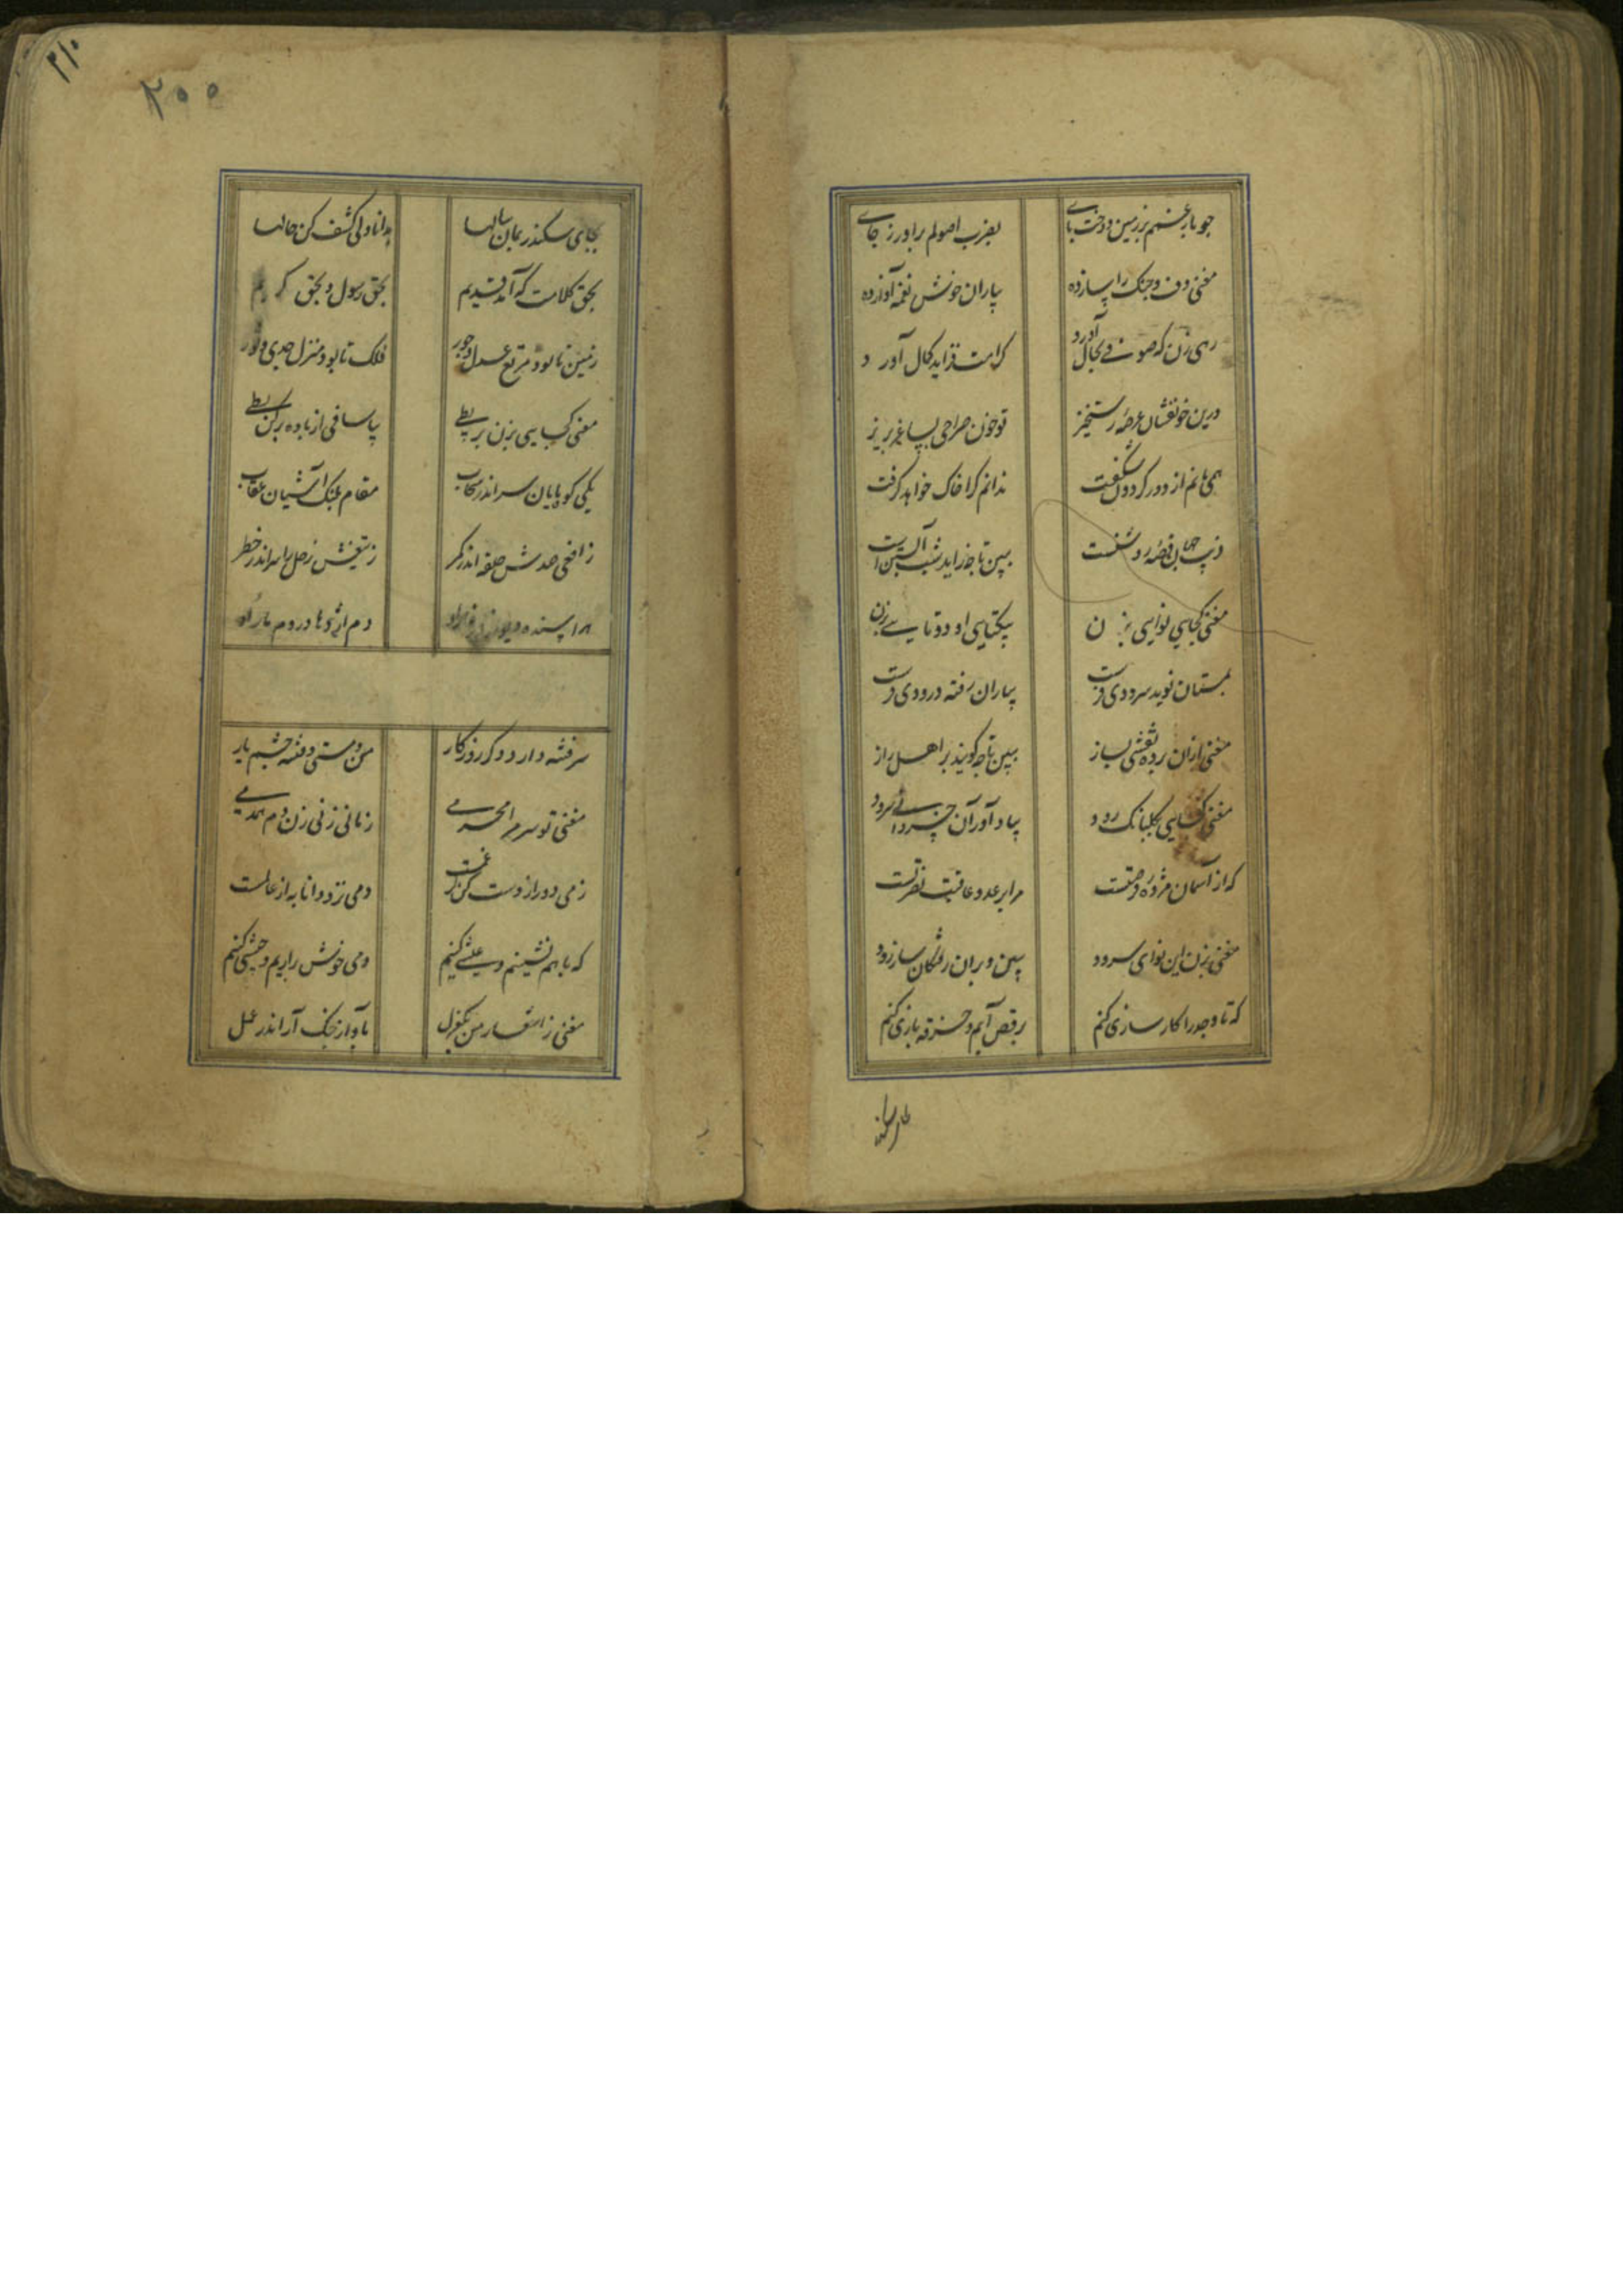 چو بار غمم بر زمین دوخت پای
بضرب اصولم برآور ز جای
مغنی دف و چنک را ساز ده
بیاران خوش نغمه آواز ده
رهی زن که صوفی بحال آورد
کرامت فزاید کمال آورد
درین خونفشان عرصهٔ رستخیز
تو خون صراحی بساغر بریز
همی مانم از دور کردون شکفت
ندانم کرا خاک خواهد کرفت
فریب جهان قصهٔ روشنست
ببین تا چه زاید شب آبستنست
مغنی کجایی نوایی بزن
بیکتایی او دوتایی بزن
بمستان نوید سرودی فرست
بیاران رفته درودی فرست
مغنی ازان پرده نقشی بساز
ببین تا چه کویند بر اهل راز
مغنی کجایی کلبانک رود
بیاد آور آن خسروانی سرود
که از آسمان مژدهٔ فرصتست
مرا بر عدو عاقبت نصرتست
مغنی بزن این نوای سرود
ببین و بران رفتکان ساز رود
که تا وجد را کارسازی کنم
برقص آیم و خرقه بازی کنم
بجای سکندر بمان سالها
بدانادلی کشف کن حالها
بحق کلامت که آمد قدیم
بحق رسول و بحق کریم
زمین تا بود مرتع عدل و جور
فلک تا بود منزل جدی و ثور
مغنی کجایی بزن بربطی
بیا ساقی از باده پر کن بطی
یکی کوه پایان سر اندر سحاب
مقام پلنک آشیان عقاب
ز افعی صدش حلقه اندر کمر
ز تیغش زحل را سر اندر خطر
دم اژدها در دم مار او
سر فتنه دارد دکر روزکار
من و مستی و فتنهٔ چشم یار
مغنی تو سر مرا محرمی
زمانی زنی زن دم همدمی
ز می دور از دست کن کر غمست
دمی نزد دانا به از عالمست
که باهم نشینیم و عیشی کنیم
دمی خوش برآریم و جیشی کنیم
مغنی ز اشعار من یک غزل
بآواز چنک آر اندر عمل
۲۰۰
۲۱۰